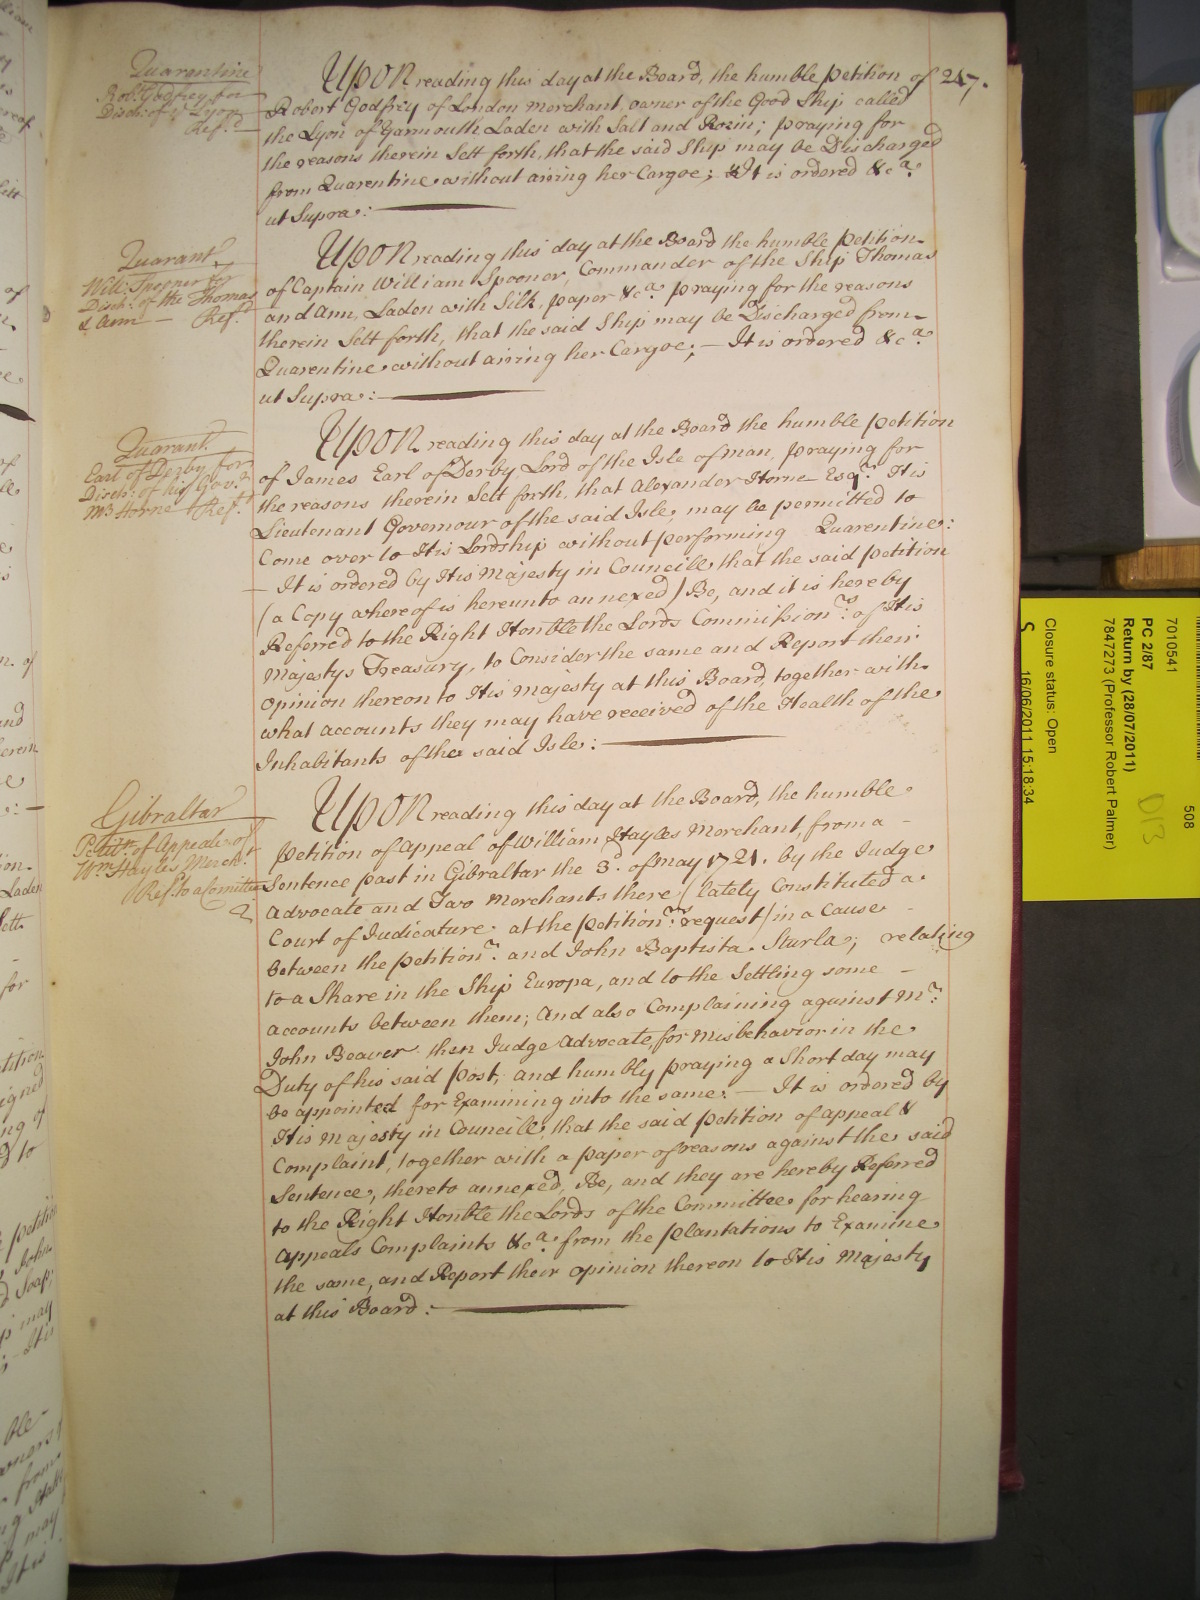 247.
Quarentine
Robt. Godfrey for
Disch: of ye Lyon
Refd.
UPON reading this day at the Board, the humble Petition of
Robert Godfrey of London Merchant, owner of the Good Ship called
the Lyon of Yarmouth Laden with Salt and Rozin; praying for
the reasons therein Sett forth, that the said Ship may be Discharged
from Quarentine without airing her Cargoe; It is ordered &ca.
ut Supra:
Quarant.
Will: Spooner for
Disch: of the Thomas
& Ann — Refd.
UPON reading this day at the Board the humble Petition
of Captain William Spooner, Commander of the Ship Thomas
and Ann, Laden with Silk, paper &ca. praying for the reasons
therein Sett forth, that the said Ship may be Discharged from
Quarentine without airing her Cargoe; — It is ordered &ca.
ut Supra:
Quarant.
Earl of Derby for
Disch: of his Govr.
Mr. Horne Refd.
UPON reading this day at the Board the humble petition
of James Earl of Derby, Lord of the Isle of Man, praying for
the reasons therein Sett forth, that Alexander Horne Esqr. His
Lieutenant Governour of the said Isle, may be permitted to
Come over to His Lordship without performing Quarentine:
— It is ordered by His Majesty in Councill, that the said petition
(a Copy whereof is hereunto annexed) Be, and it is hereby
Referred to the Right Honble the Lords Commissionrs. of His
Majestys Treasury, to Consider the same and Report their
opinion thereon to His Majesty at this Board, together with
what accounts they may have received of the Health of the
Inhabitants of the said Isle:
Gibraltar
Petitn. of Appeale of
Wm. Hayles Mercht.
Ref. to a Comittee
UPON reading this day at the Board, the humble
petition of Appeal of William Hayles Merchant, from a
Sentence past in Gibraltar the 3d. of May 1721. by the Judge
Advocate and Two Merchants there (lately Constituted a
Court of Judicature at the petitionrs. request) in a Cause
between the petitionr. and John Baptista Sturla; relating
to a Share in the Ship Europa, and to the Settling some
accounts between them; And also Complaining against Mr.
John Beaver then Judge Advocate, for Misbehavior in the
Duty of his said post, and humbly praying a Short day may
be appointed for Examining into the same: — It is ordered by
His Majesty in Councill, that the said petition of Appeal &
Complaint, together with a paper of reasons against the said
Sentence, thereto annexed, Be, and they are hereby Referred
to the Right Honble the Lords of the Committee for hearing
Appeals Complaints &ca. from the plantations to Examine
the same, and Report their opinion thereon to His Majesty
at this Board:
7010541
508
PC 2/87
Return by (28/07/2011)
7847273 (Professor Robert Palmer)
D13
Closure status: Open
S
16/06/2011 15:18:34